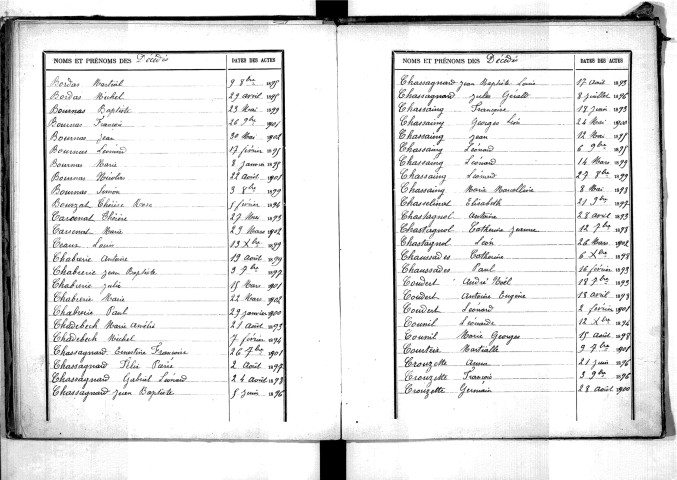 NOMS ET PRÉNOMS DES Décédés DATES DES ACTES
Bordas Martial 9 8bre 1895
Bordas Michel 29 avril 1895
Bournas Baptiste 23 Mai 1899
Bournas François 26 9bre 1901
Bournas Jean 30 Mai 1902
Bournas Léonard 17 février 1895
Bournas Marie 8 janvier 1895
Bournas Nicolas 22 août 1901
Bournas Simon 3 8bre 1899
Bourzat Thérèse Rose 5 février 1896
Carcenat Thérèse 29 Mai 1893
Carcenat Marie 23 Mars 1902
Ceaux Louis 13 Xbre 1899
Chabrerie Antoine 19 août 1899
Chabrerie Jean Baptiste 3 7bre 1897
Chabrerie Julie 15 Mars 1901
Chabrerie Marie 22 Mars 1902
Chabrerie Paul 29 janvier 1900
Chadebech Marie Amélie 21 août 1893
Chadebech Michel 7 février 1894
Chassagnard Ernestine Françoise 26 7bre 1901
Chassagnard Félix 2 août 1897
Chassagnard Gabriel Léonard 24 août 1898
Chassagnard Jean Baptiste 5 juin 1896
NOMS ET PRÉNOMS DES Décédés DATES DES ACTES
Chassagnard Jean Baptiste Louis 17 août 1893
Chassagnard Jules 8 juillet 1896
Chassaing Françoise 18 juin 1893
Chassaing Georges Léon 24 Mai 1900
Chassaing Jean 12 Mai 1895
Chassaing Léonard 6 9bre 1895
Chassaing Léonard 14 Mars 1899
Chassaing Léonard 27 8bre 1899
Chassaing Marie Marcelline 8 Mai 1893
Chasselinat Elisabeth 21 9bre 1897
Chastagnol Antoine 28 avril 1893
Chastagnol Catherine Jeanne 12 7bre 1898
Chastagnol Léon 26 Mars 1902
Chaussades Catherine 6 Xbre 1898
Chaussades Paul 16 février 1893
Coudert André Noël 18 7bre 1893
Coudert Antoine Eugène 18 avril 1893
Coudert Léonard 2 février 1901
Counil Léonarde 12 Xbre 1894
Counil Marie Georges 15 août 1898
Courteix Martiale 9 7bre 1901
Crouzette Anna 21 juin 1896
Crouzette François 3 9bre 1896
Crouzette Germain 28 août 1900